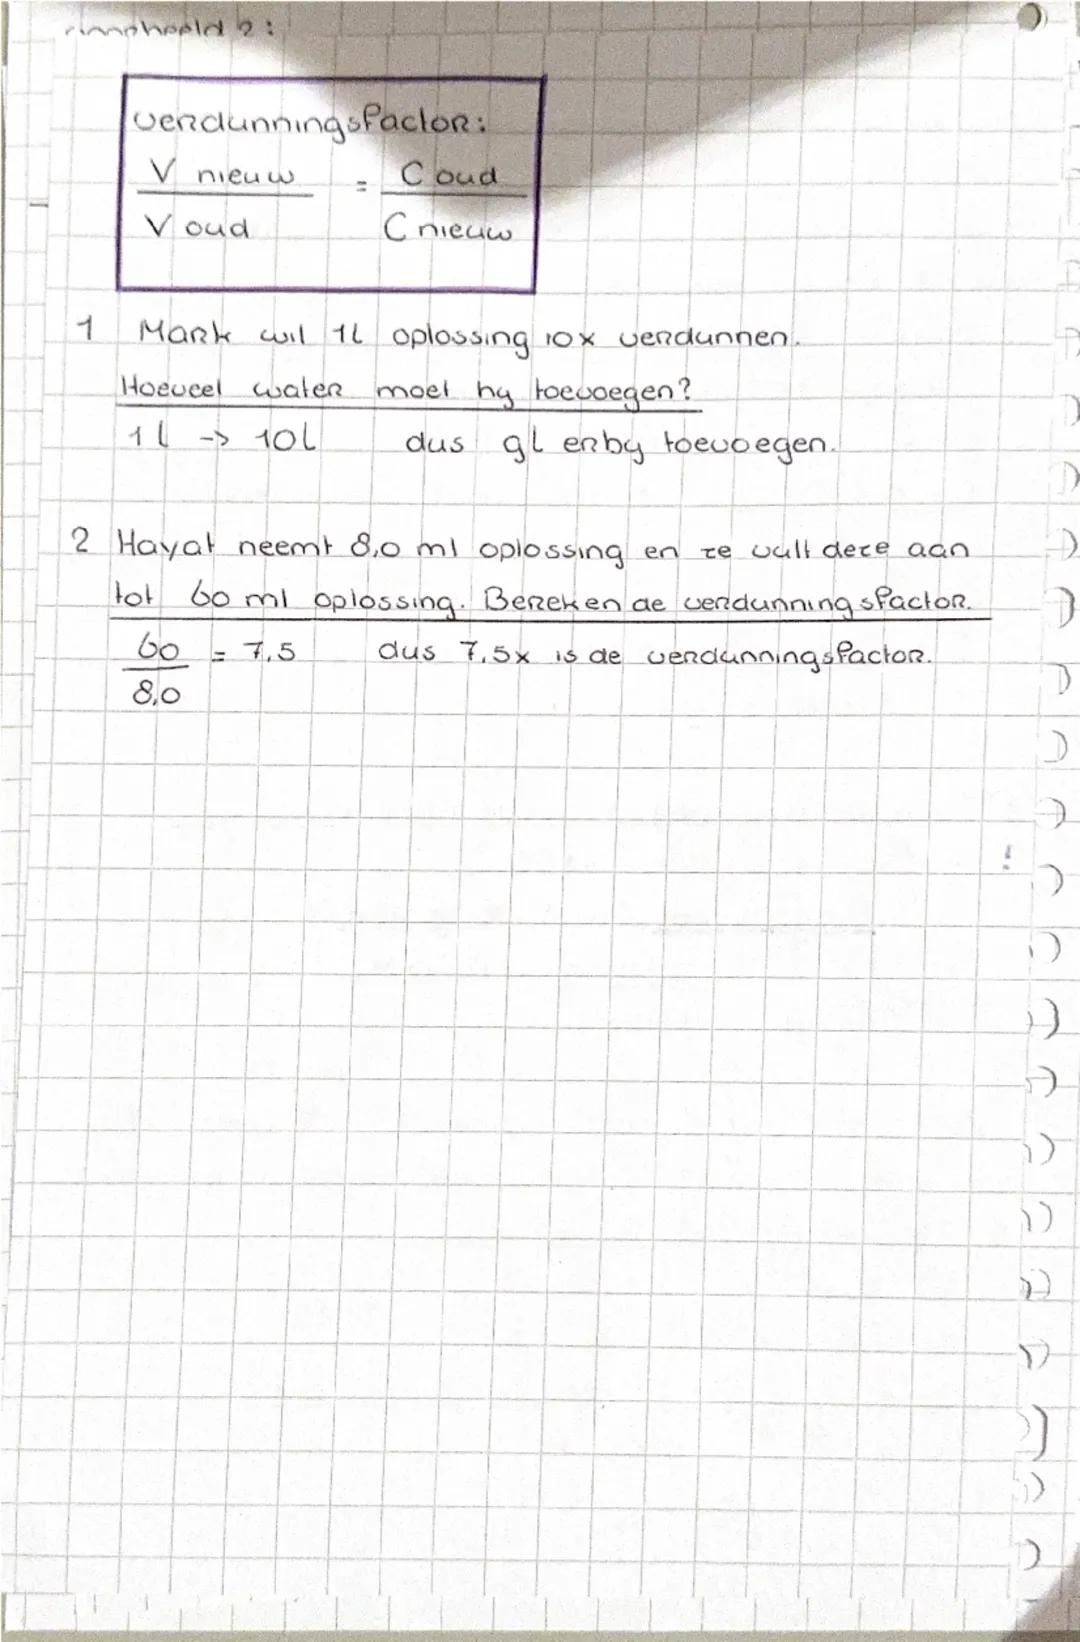 2:
verdunningsfactor:
V nieuw = C oud
V oud C nieuw
1 Mark wil 1L oplossing 10x verdunnen.
Hoeveel water moet hy toevoegen?
1L -> 10L dus 9L erby toevoegen.
2 Hayat neemt 8,0 ml oplossing en ze vult deze aan
tot 60 ml oplossing. Bereken de verdunningsfactor.
60 = 7,5 dus 7,5x is de verdunningsfactor.
8,0